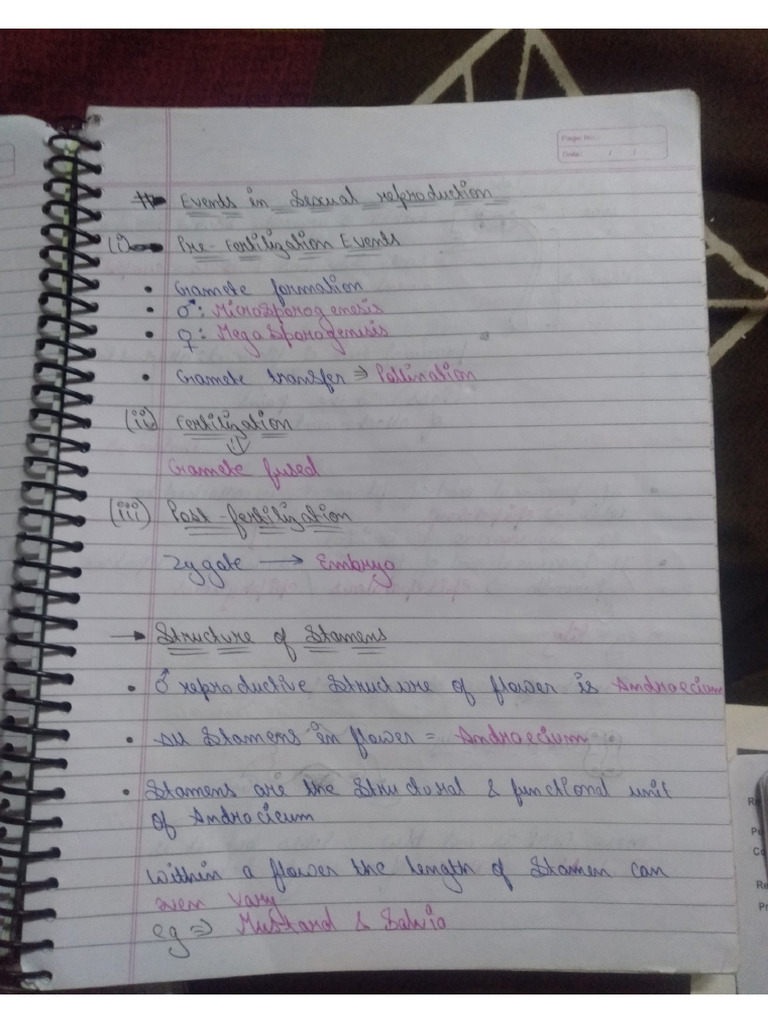 Page No.:
Date: / /
# Events in Sexual reproduction
(i) Pre-fertilization Events
• Gamete formation
• ♂: Microsporogenesis
• ♀: Megasporogenesis
• Gamete transfer ⇒ Pollination
(ii) Fertilization
⇓
Gamete fused
(iii) Post-fertilization
Zygote → Embryo
→ Structure of Stamens
• ♂ reproductive structure of flower is Androecium
• All Stamens in flower = Androecium
• Stamens are the structural & functional unit
of Androcieum
Within a flower the length of Stamen can
even vary
eg ⇒ Mustard & Salvia